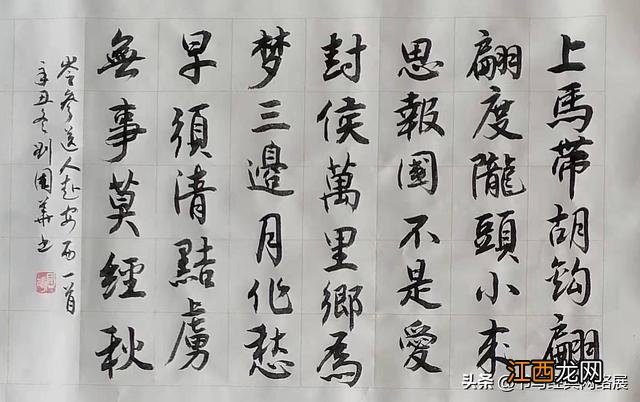 上馬帶胡鈎翩
翩度隴頭小來
思報國不是愛
封侯萬里鄉爲
梦三邊月作愁
早須清黠虜
無事莫經秋
岑參送人赴安西一首
辛丑冬劉國華书
头条
江西龙网